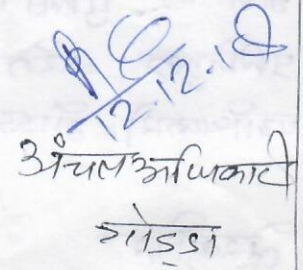 12.12.18
अंचल अधिकारी
गोड्डा